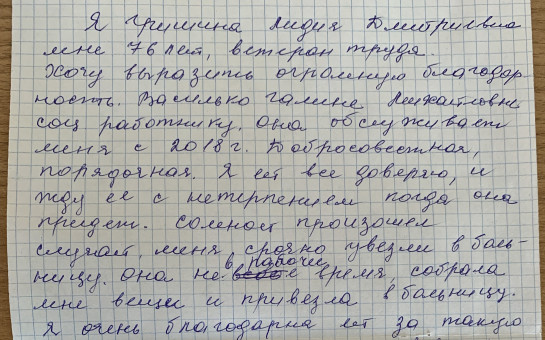 Я Гришина Лидия Дмитриевна
мне 76 лет, ветеран труда.
Хочу выразить огромную благодар
ность. Василько Галине Михайловне
соц работнику. Она обслуживает
меня с 2018 г. Добросовестная,
порядочная. Я ей все доверяю, и
жду ее с нетерпением когда она
придет. Со мной произошел
случай, меня срочно увезли в боль-
ницу. Она не в рабочее время, собрала
мне вещи и привезла в больницу.
Я очень благодарна ей за такую